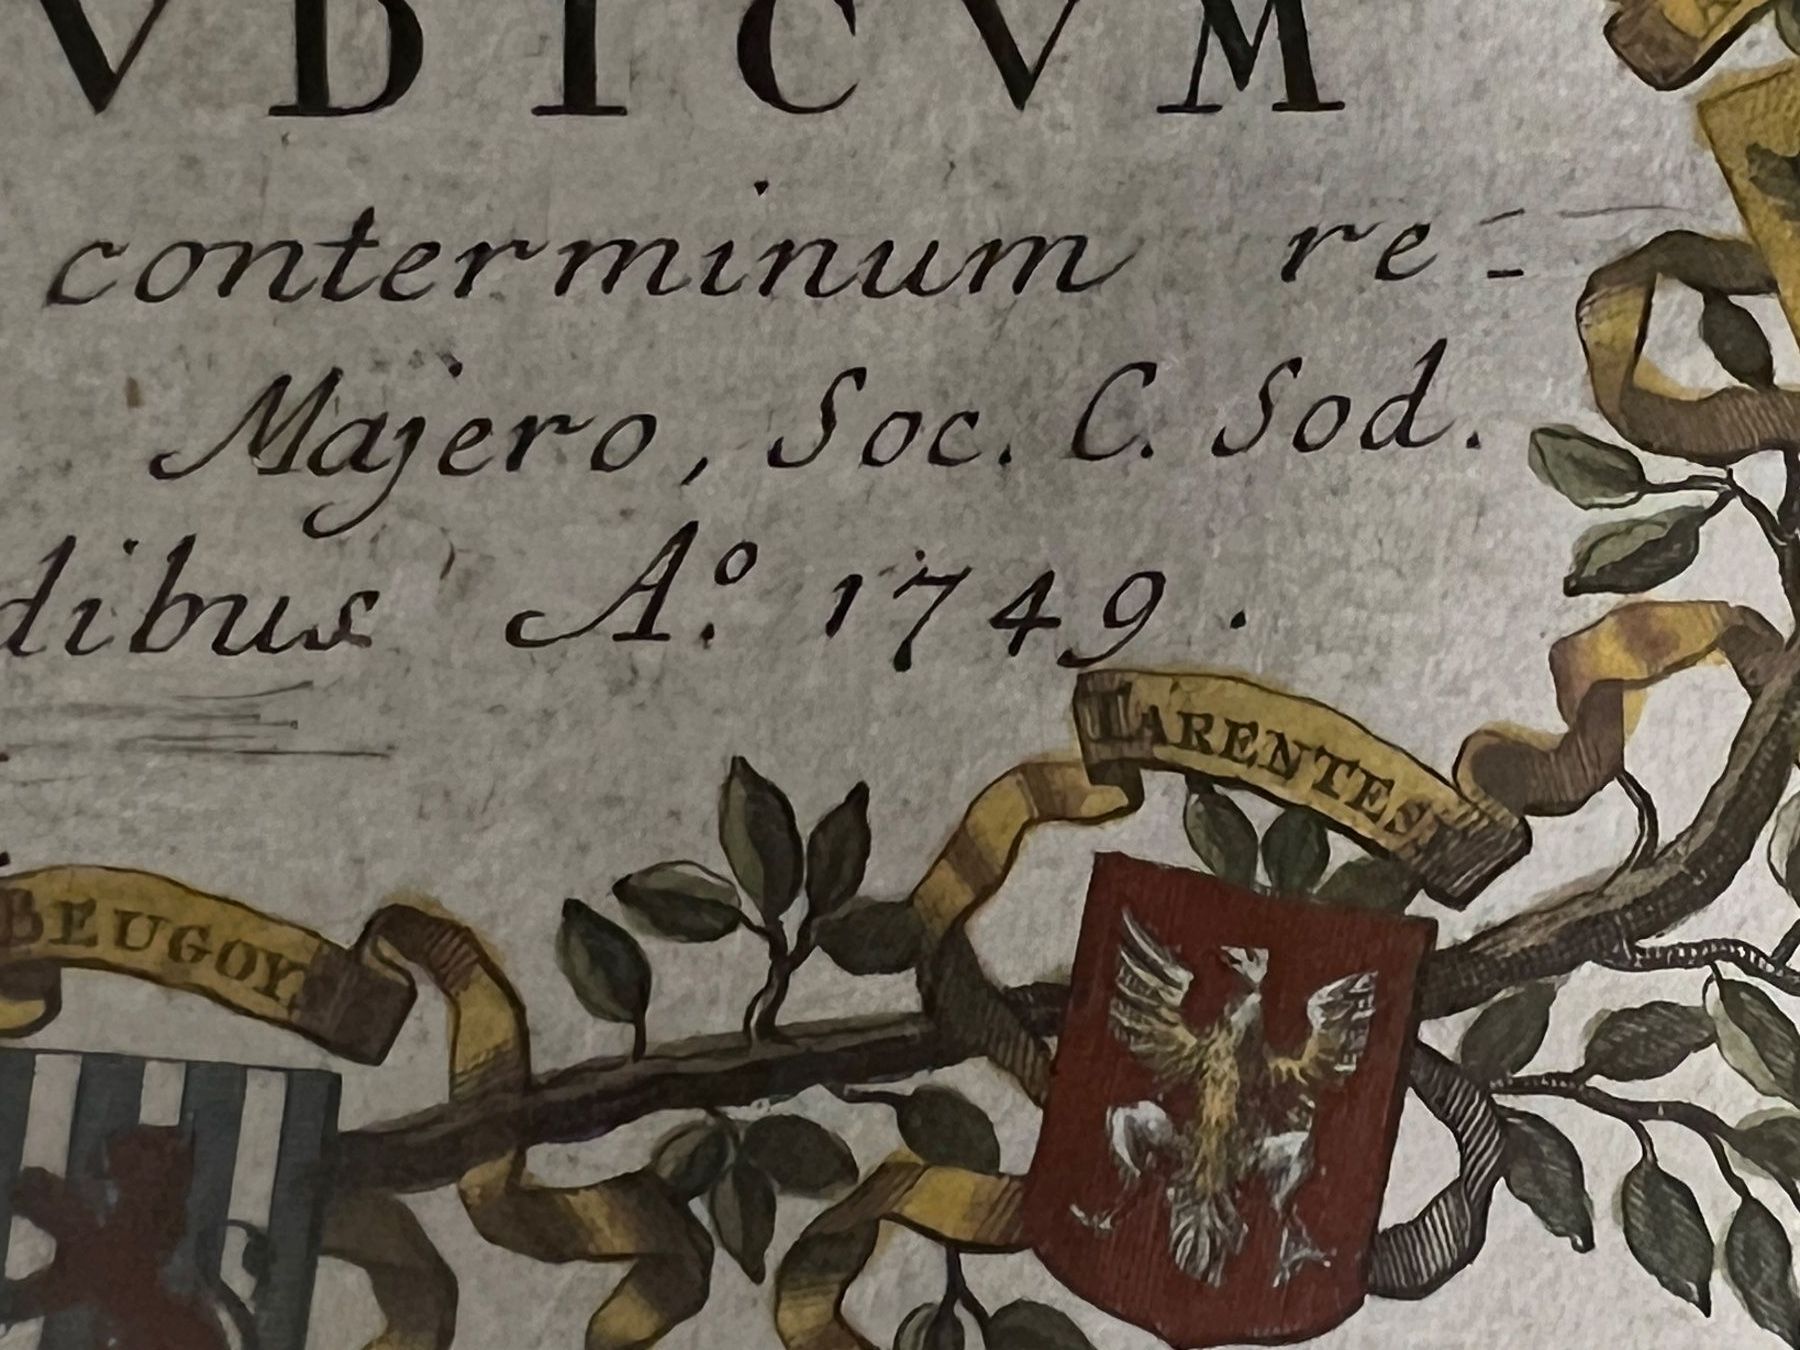 VDICVM
conterminum re-
Majero, Soc. C. Sod.
dibus A.º 1749.
LARENTES
BEUGOY.